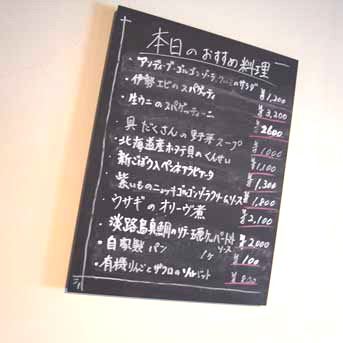 本日のおすすめ料理
・アンディーブ・ゴルゴンゾーラ、クルミのサラダ ¥1,200
・伊勢エビのスパゲッティ ¥3,200
・生ウニのスパゲッティーニ ¥2600
・具だくさんの野菜スープ ¥1000
・北海道産ホタテ貝のくんせい ¥1,100
・新ごぼう入ペンネアラビアータ ¥1,300
・紫いものニョッキゴルゴンゾーラクリームソース ¥1,800
・ウサギのオリーヴ煮 ¥2,100
・淡路島真鯛の ソース ¥2,000
・自家製パン 1ヶ ¥100
・有機りんごとザクロのソルベット ¥800